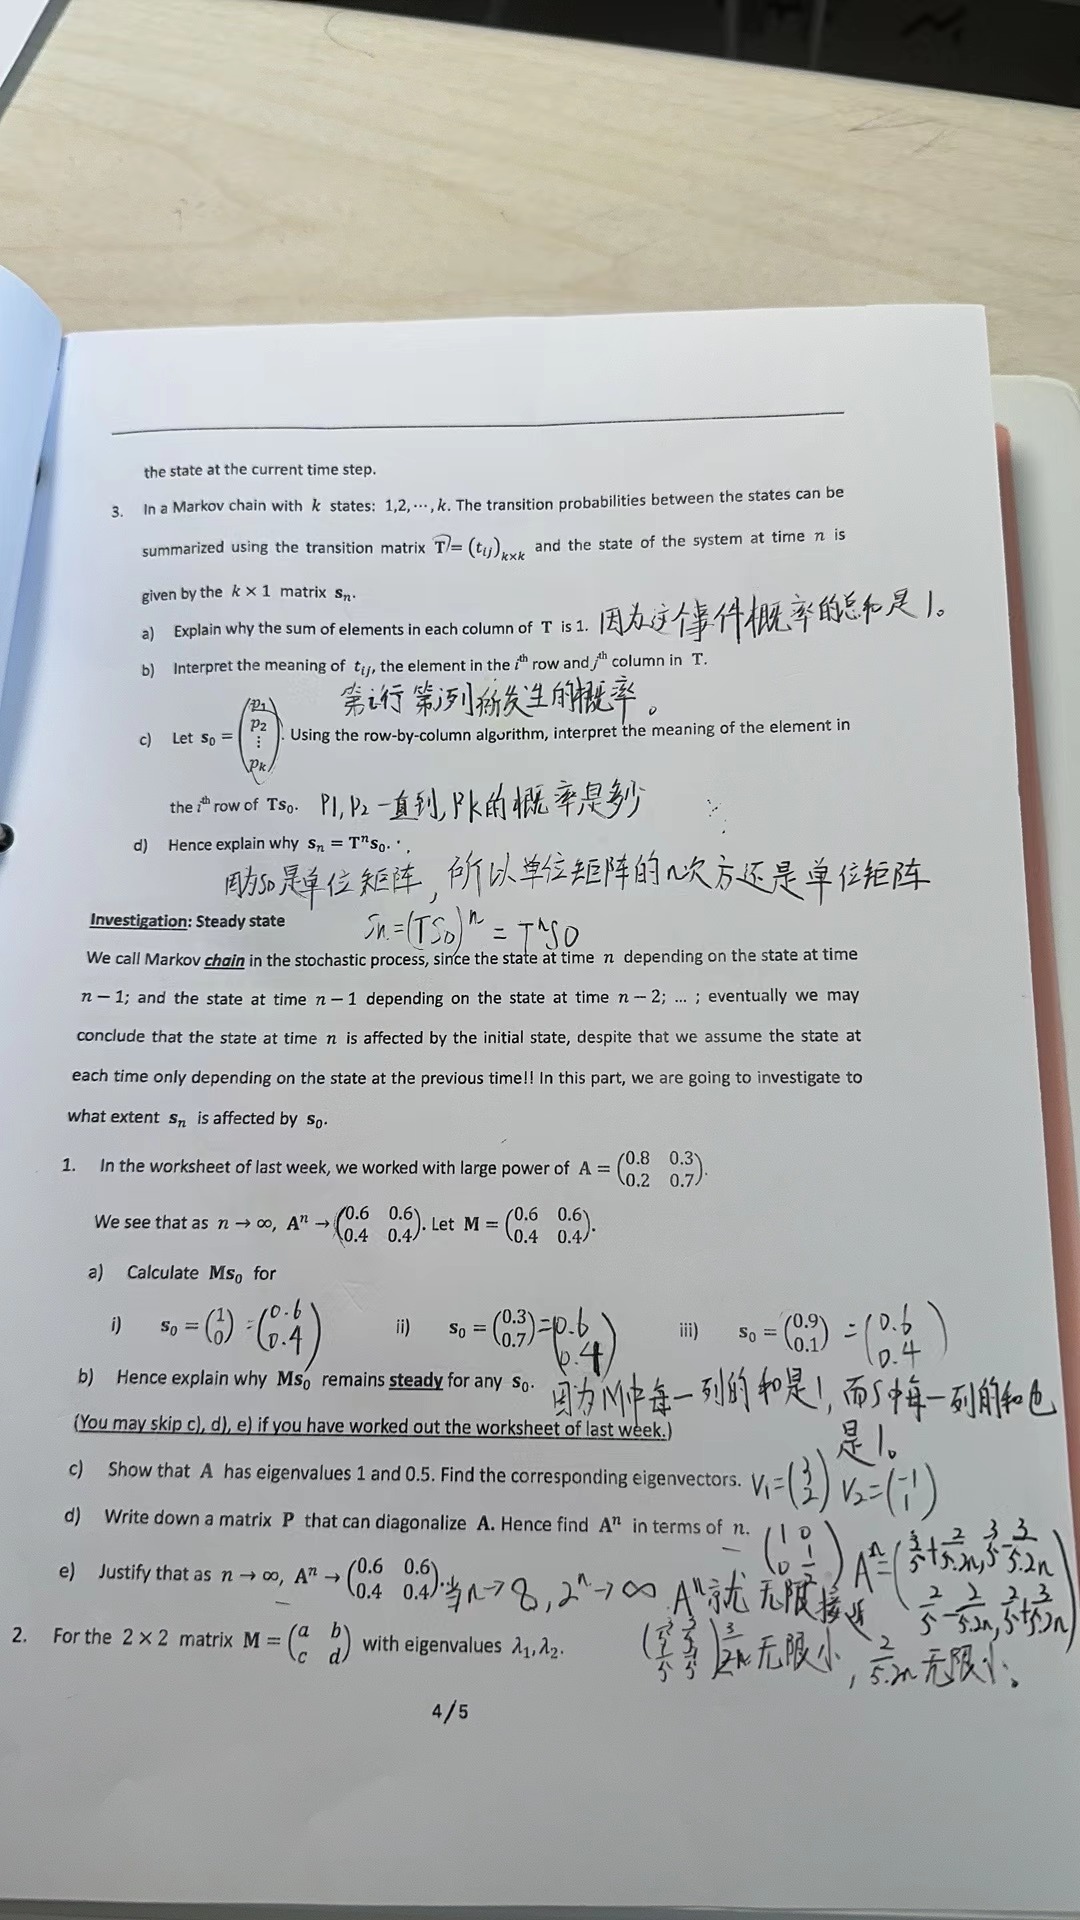 the state at the current time step.
3. In a Markov chain with k states: 1,2,⋯,k. The transition probabilities between the states can be
summarized using the transition matrix T = (tᵢⱼ)ₖₓₖ and the state of the system at time n is
given by the k × 1 matrix sₙ.
a) Explain why the sum of elements in each column of T is 1. 因为这个事件概率的总和是1。
b) Interpret the meaning of tᵢⱼ, the element in the iᵗʰ row and jᵗʰ column in T.
第i行第j列所发生的概率。
c) Let s₀ = (p₁ p₂ ⋮ pₖ). Using the row-by-column algorithm, interpret the meaning of the element in
the iᵗʰ row of Ts₀. P1, P2 一直到, Pk的概率是多少
d) Hence explain why sₙ = Tⁿs₀.
因为S0是单位矩阵, 所以单位矩阵的n次方还是单位矩阵
Investigation: Steady state Sn=(TS0)ⁿ = TⁿS0
We call Markov chain in the stochastic process, since the state at time n depending on the state at time
n − 1; and the state at time n − 1 depending on the state at time n − 2; ... ; eventually we may
conclude that the state at time n is affected by the initial state, despite that we assume the state at
each time only depending on the state at the previous time!! In this part, we are going to investigate to
what extent sₙ is affected by s₀.
1. In the worksheet of last week, we worked with large power of A = (0.8 0.3 0.2 0.7).
We see that as n → ∞, Aⁿ → (0.6 0.6 0.4 0.4). Let M = (0.6 0.6 0.4 0.4).
a) Calculate Ms₀ for
i) s₀ = (1 0) = (0.6 0.4) ii) s₀ = (0.3 0.7) = (0.6 0.4) iii) s₀ = (0.9 0.1) = (0.6 0.4)
b) Hence explain why Ms₀ remains steady for any s₀. 因为M中每一列的和是1, 而S中每一列的和也
(You may skip c), d), e) if you have worked out the worksheet of last week.) 是1。
c) Show that A has eigenvalues 1 and 0.5. Find the corresponding eigenvectors. V₁=(3 2) V₂=(-1 1)
d) Write down a matrix P that can diagonalize A. Hence find Aⁿ in terms of n. (1 0 0 1/2) Aⁿ=(3/5+2/5·2n, 3/5-3/5·2n 2/5-2/5·2n, 2/5+3/5·2n)
e) Justify that as n → ∞, Aⁿ → (0.6 0.6 0.4 0.4). 当n→8, 2ⁿ→∞ Aⁿ就无限接近
2. For the 2 × 2 matrix M = (a b c d) with eigenvalues λ₁, λ₂. 无限小, 2/5·2n无限小。
4/5